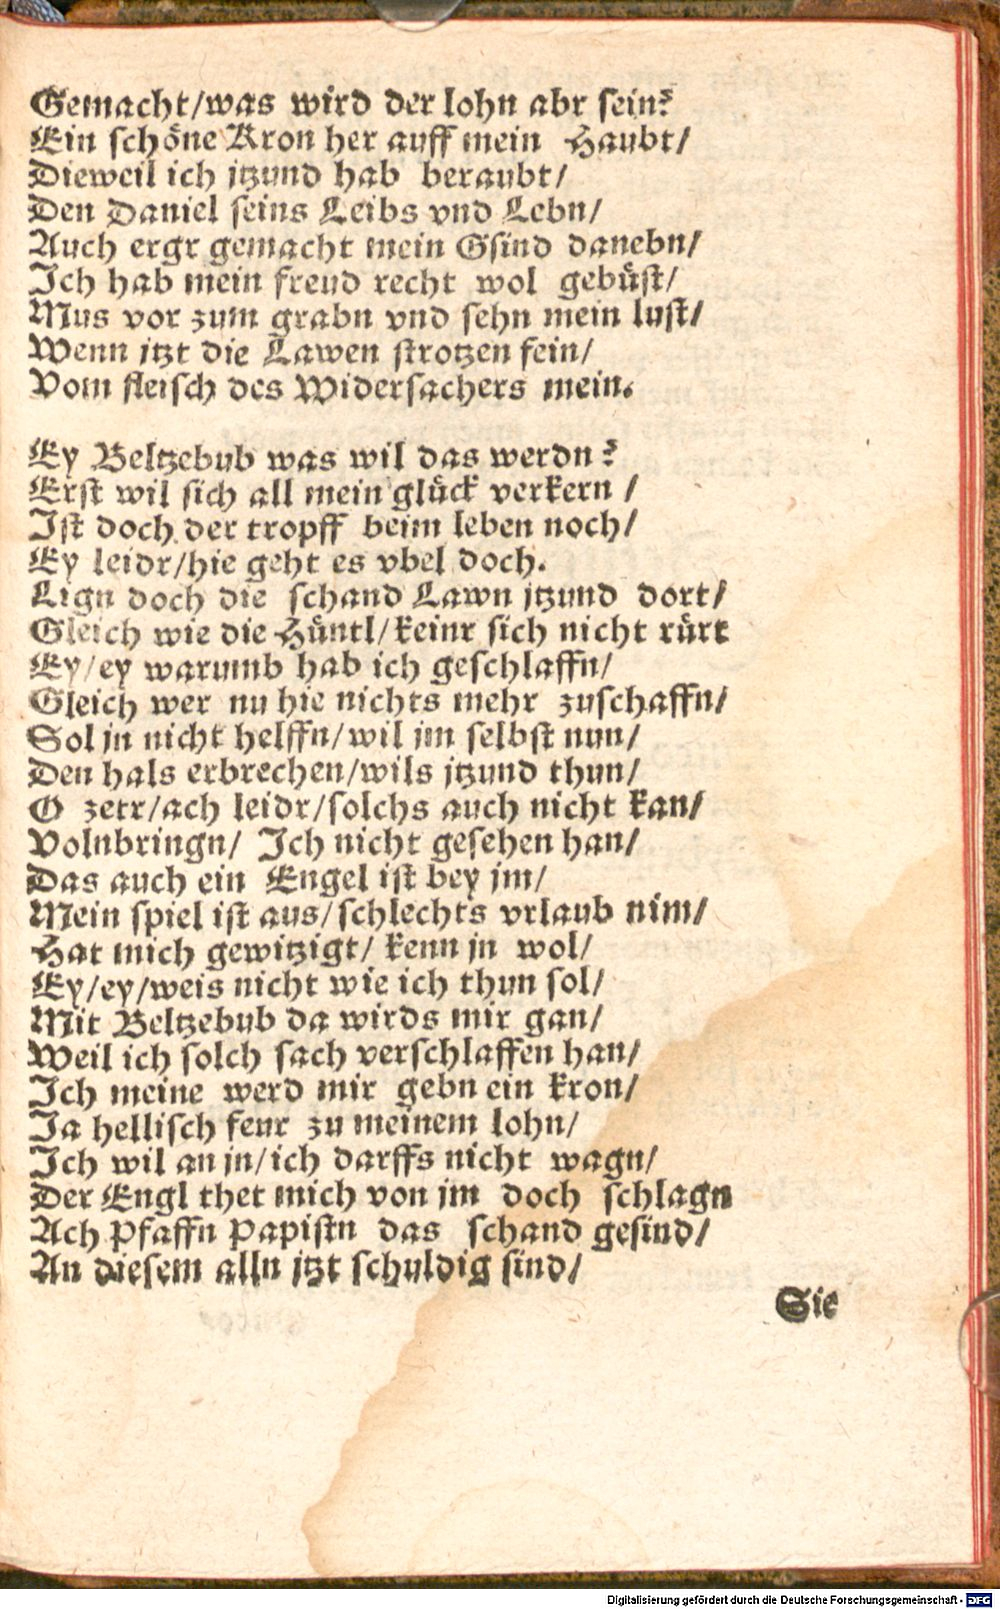 Gemacht/was wird der lohn abr sein?
Ein schöne Kron her auff mein Haubt/
Dieweil ich jtzund hab beraubt/
Den Daniel seins Leibs vnd Lebn/
Auch ergr gemacht mein Gsind danebn/
Ich hab mein freud recht wol gebüst/
Mus vor zum grabn vnd sehn mein lust/
Wenn jtzt die Lawen strotzen fein/
Vom fleisch des Widersachers mein.
Ey Beltzebub was wil das werdn?
Erst wil sich all mein glück verkern/
Ist doch der tropff beim leben noch/
Ey leidr/hie geht es vbel doch.
Lign doch die schand Lawn jtzund dort/
Gleich wie die Hüntl/keinr sich nicht rürt
Ey/ey warumb hab ich geschlaffn/
Gleich wer nu hie nichts mehr zuschaffn/
Sol jn nicht helffn/wil jm selbst nun/
Den hals erbrechen/wils jtzund thun/
O zetr/ach leidr/solchs auch nicht kan/
Volnbringn/ Ich nicht gesehen han/
Das auch ein Engel ist bey jm/
Mein spiel ist aus/schlechts vrlaub nim/
Hat mich gewitzigt/ kenn jn wol/
Ey/ey/weis nicht wie ich thun sol/
Mit Beltzebub da wirds mir gan/
Weil ich solch sach verschlaffen han/
Ich meine werd mir gebn ein kron/
Ja hellisch feur zu meinem lohn/
Ich wil an jn/ich darffs nicht wagn/
Der Engl thet mich von jm doch schlagn
Ach Pfaffn Papistn das schand gesind/
An diesem alln jtzt schuldig sind/
Sie
Digitalisierung gefördert durch die Deutsche Forschungsgemeinschaft - DFG